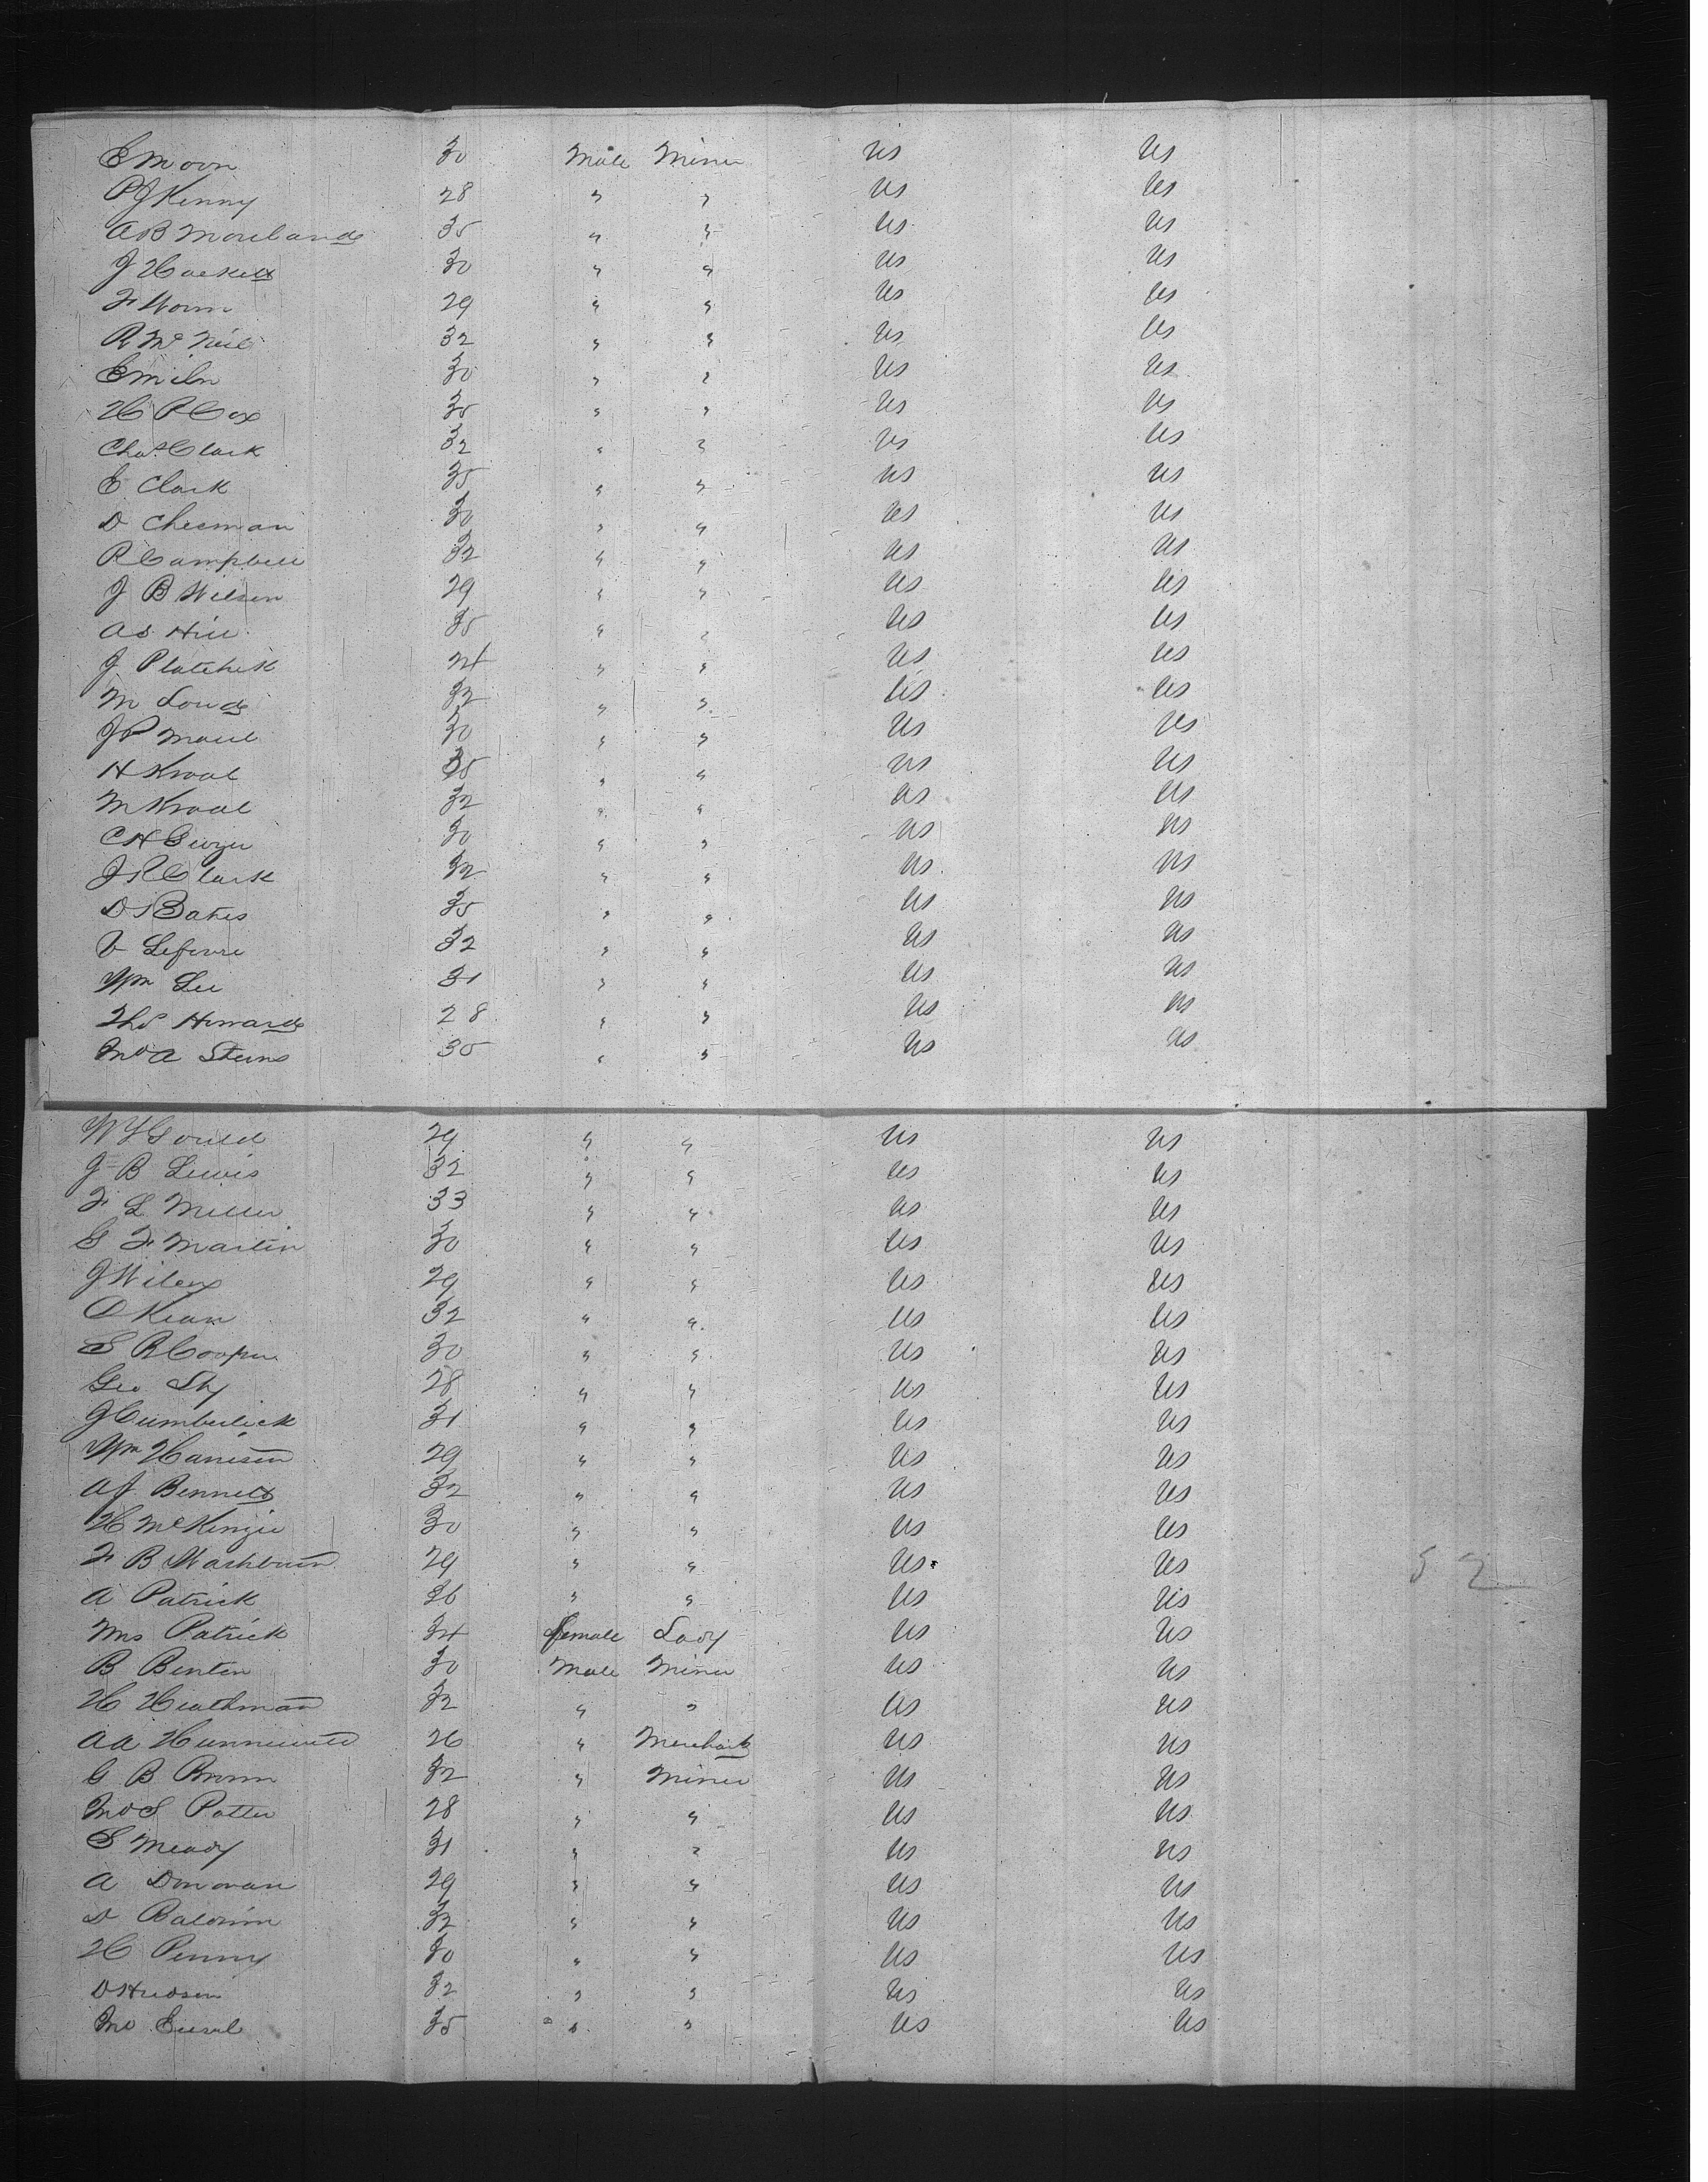 E Moon 30 Male Miner US US
P J Kenny 28 " " US US
A B Moreland 35 " " US US
J Hackett 30 " " US US
F Worm 29 " " US US
R McNeil 32 " " US US
E Miln 30 " " US US
H P Cox 35 " " US US
Chas Clark 32 " " US US
E Clark 35 " " US US
D Cheeman 30 " " US US
R Campbell 32 " " US US
J B Wilson 29 " " US US
A S Hill 35 " " US US
J Platchek 24 " " US US
M Loud 32 " " US US
J P Maul 30 " " US US
H Kraal 35 " " US US
M Kraal 32 " " US US
C H 30 " " US US
J R Clark 32 " " US US
D S Bates 35 " " US US
V Lefevre 32 " " US US
Wm Lee 31 " " US US
Ths Howard 28 " " US US
Jno A Sterns 30 " " US US
W L Gould 29 " " US US
J B Lewis 32 " " US US
F L Miller 33 " " US US
G F Martin 30 " " US US
J Wilcox 29 " " US US
O Kean 32 " " US US
S R Cooper 30 " " US US
Geo Shy 28 " " US US
J Cumberlick 31 " " US US
Wm Harrison 29 " " US US
A J Bennett 32 " " US US
H McKenzie 30 " " US US
F B Washburn 29 " " US US 52
A Patrick 36 " " US US
Mrs Patrick 34 female Lady US US
B Benten 30 Male Miner US US
H Heathman 32 " " US US
A A Hunnewell 26 " Merchant US US
G B Brown 32 " Miner US US
Jno S Potter 28 " " US US
S Meady 31 " " US US
A Donovan 29 " " US US
D Baldwin 32 " " US US
H Penny 30 " " US US
D Hudson 32 " " US US
Jno 35 " " US US